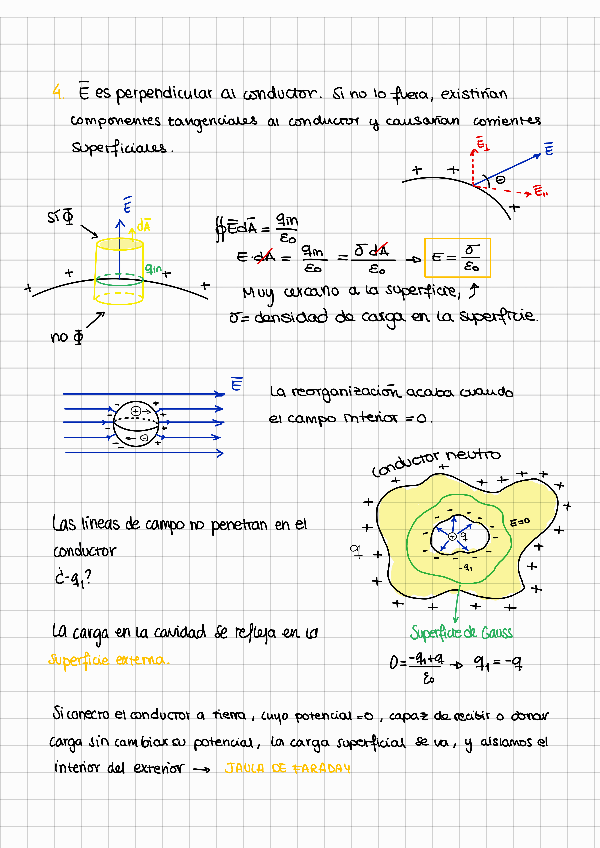 4. E̅ es perpendicular al conductor. Si no lo fuera, existirían
componentes tangenciales al conductor y causarían corrientes
superficiales.
+ + E̅⊥ E̅
θ
E̅,,
+
SÍ Φ E̅ dA̅
qin
+ + + +
no Φ
∯E̅dA̅ = qin/ε₀
E·dA = qin/ε₀ = σdA/ε₀ → E = σ/ε₀
Muy cercano a la superficie, ↑
σ = densidad de carga en la superficie.
E̅
La reorganización acaba cuando
el campo interior = 0.
conductor neutro
E̅=0
q
-q₁
q
Las líneas de campo no penetran en el
conductor
¿-q₁?
La carga en la cavidad se refleja en la
superficie externa.
Superficie de Gauss
0 = -q₁+q/ε₀ → q₁ = -q
Si conecto el conductor a tierra, cuyo potencial = 0, capaz de recibir o donar
carga sin cambiar su potencial, la carga superficial se va, y aislamos el
interior del exterior → JAULA DE FARADAY